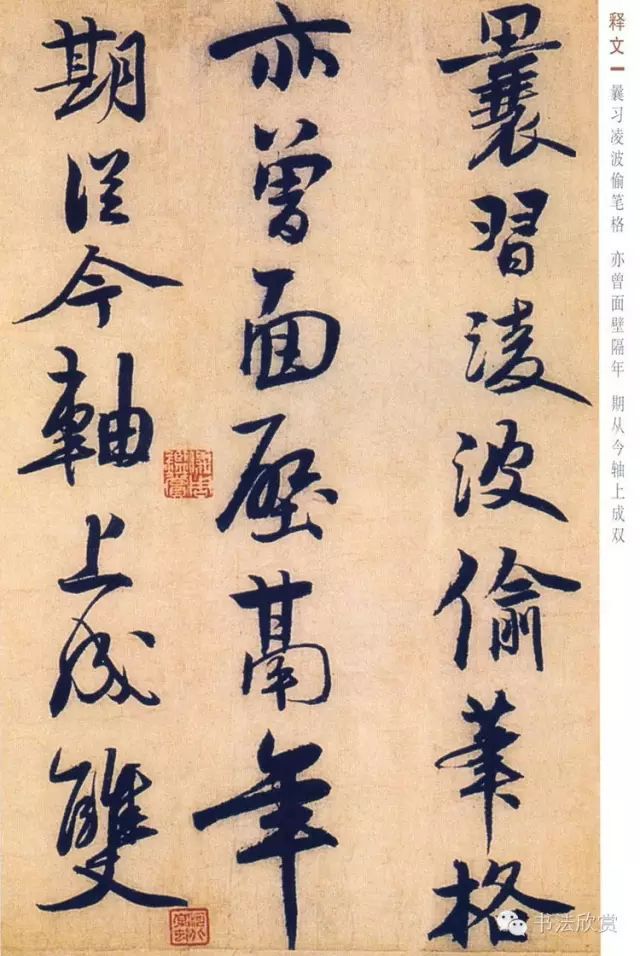 释文
曩习凌波偷笔格 亦曾面壁隔年 期从今轴上成双
曩習淩波偷筆格
亦曾面壁鬲年
期從今軸上成雙
书法欣赏